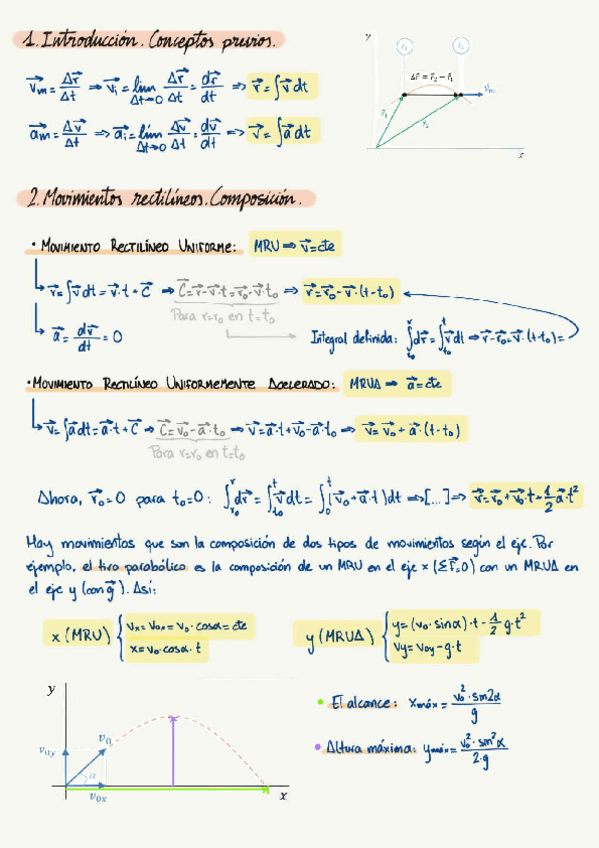 1. Introducción. Conceptos previos.
v⃗m = Δr⃗/Δt ⇒ v⃗i = lím Δt→0 Δr⃗/Δt = dr⃗/dt ⇒ r⃗ = ∫v⃗dt
a⃗m = Δv⃗/Δt ⇒ a⃗i = lím Δt→0 Δv⃗/Δt = dv⃗/dt ⇒ v⃗ = ∫a⃗dt
y
t₁
t₂
Δr⃗ = r⃗₂ − r⃗₁
v⃗m
r⃗₁
r⃗₂
x
2. Movimientos rectilíneos. Composición.
• MOVIMIENTO RECTILÍNEO UNIFORME: MRU ⇒ v⃗ = cte
r⃗ = ∫v⃗dt = v⃗·t + C⃗ ⇒ C⃗ = r⃗ − v⃗·t = r⃗₀ − v⃗·t₀ ⇒ r⃗ = r⃗₀ − v⃗·(t − t₀)
Para r = r₀ en t = t₀
a⃗ = dv⃗/dt = 0
Integral definida: ∫r₀^r dr⃗ = ∫t₀^t v⃗dt ⇒ r⃗ − r⃗₀ = v⃗·(t − t₀) =
• MOVIMIENTO RECTILÍNEO UNIFORMEMENTE ACELERADO: MRUA ⇒ a⃗ = cte
v⃗ = ∫a⃗dt = a⃗·t + C⃗ ⇒ C⃗ = v⃗₀ − a⃗·t₀ ⇒ v⃗ = a⃗·t + v⃗₀ − a⃗·t₀ ⇒ v⃗ = v⃗₀ + a⃗·(t − t₀)
Para r = r₀ en t = t₀
Ahora, r⃗₀ = 0 para t₀ = 0: ∫r₀^r dr⃗ = ∫t₀^t v⃗dt = ∫0^t (v⃗₀ + a⃗·t)dt ⇒ [...] ⇒ r⃗ = r⃗₀ + v⃗₀·t + 1/2 a⃗·t²
Hay movimientos que son la composición de dos tipos de movimientos según el eje. Por
ejemplo, el tiro parabólico es la composición de un MRU en el eje x (ΣF⃗ = 0) con un MRUA en
el eje y (con g⃗). Así:
x (MRU) { vx = v0x = v₀·cosα = cte
x = v₀·cosα·t
y (MRUA) { y = (v₀·sinα)·t − 1/2 g·t²
vy = v0y − g·t
y
v0y
v0
α
v0x
x
• El alcance: xmáx = v₀²·sin2α/g
• Altura máxima: ymáx = v₀²·sin²α/2·g